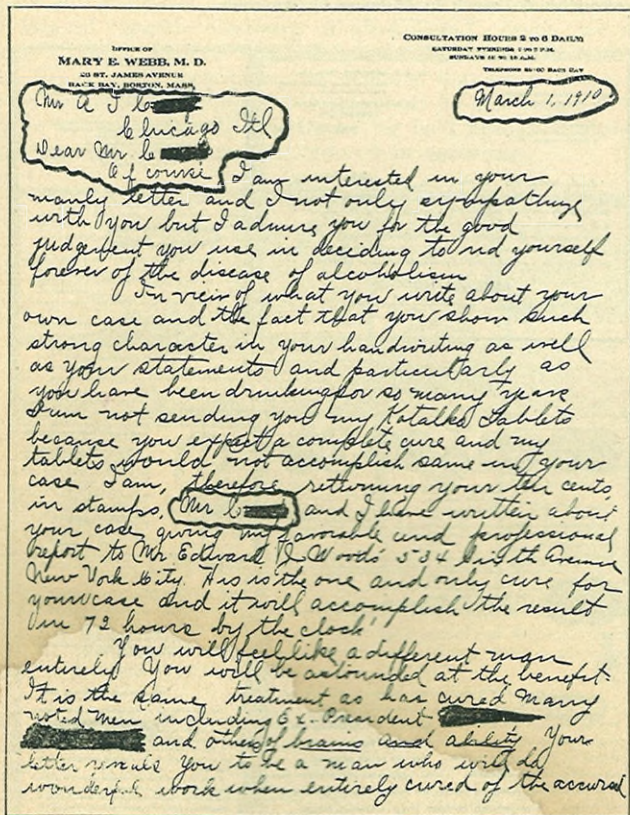 OFFICE OF
MARY E. WEBB, M. D.
23 ST. JAMES AVENUE
BACK BAY, BOSTON, MASS.
CONSULTATION HOURS 2 TO 6 DAILY
SATURDAY EVENINGS
SUNDAYS
TELEPHONE BACK BAY
March 1, 1910
Mr A J C
Chicago Ill
Dear Mr. C
Of course I am interested in your
manly letter and I not only sympathize
with you but I admire you for the good
judgement you use in deciding to rid yourself
forever of the disease of alcoholism
In view of what you write about your
own case and the fact that you show such
strong character in your handwriting as well
as your statements and particularly as
you have been drinking for so many years
I am not sending you my Kotalko Tablets
because you expect a complete cure and my
tablets would not accomplish same in your
case I am, therefore returning your ten cents
in stamps, Mr C and I have written about
your case giving my favorable and professional
report to Mr Edward J Woods 534 Sixth Avenue
New York City. His is the one and only cure for
your case and it will accomplish the result
in 72 hours by the clock.
You will feel like a different man
entirely You will be astounded at the benefit.
It is the same treatment as has cured many
noted men including Ex-President
and others of brains and ability Your
letter reveals you to be a man who will do
wonderful work when entirely cured of the accursed